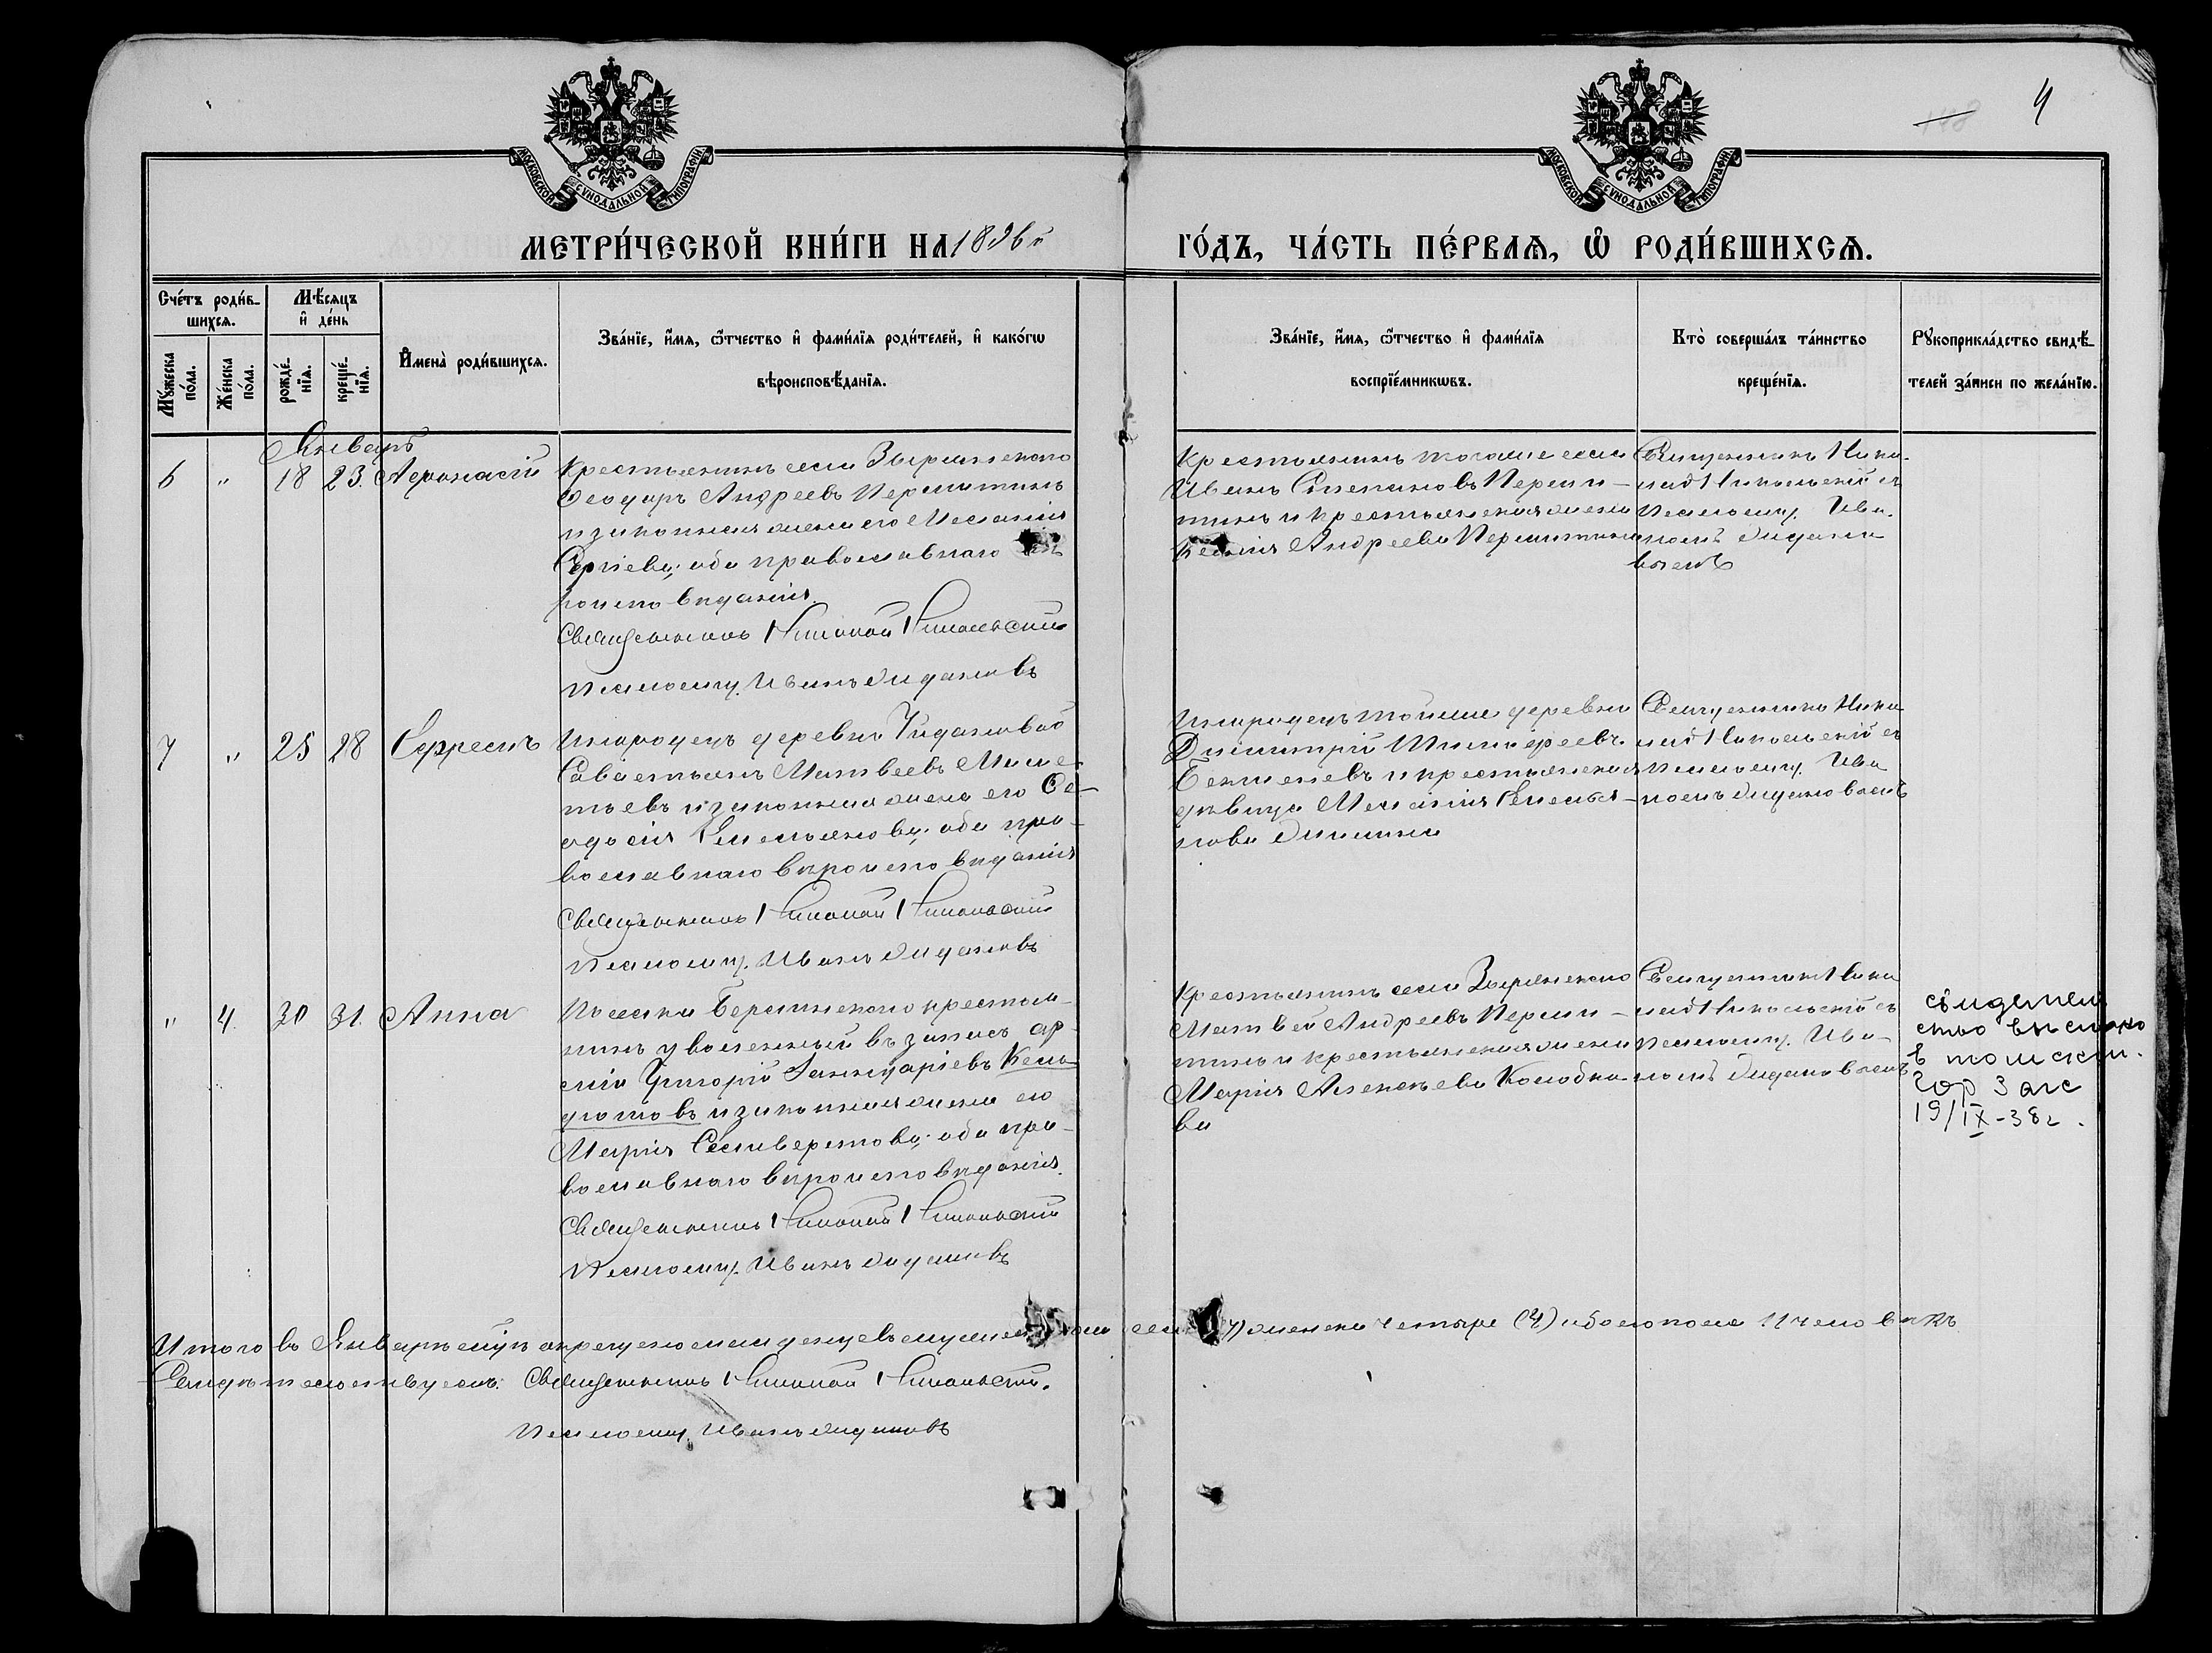 МОСКОВСКОЙ СѴНОДАЛЬНОЙ ТИПОГРАФІИ
МОСКОВСКОЙ СѴНОДАЛЬНОЙ ТИПОГРАФІИ
4
МЕТРИ́ЧЕСКОЙ КНИ́ГИ НА 1896й
ГО́ДЪ, ЧА́СТЬ ПЕ́РВАѦ, Ѡ҆ РОДИ́ВШИХСѦ.
Сче́тъ роди́в-
шихсѧ.
Мѣ́сѧцъ
и҆ де́нь
Мꙋ́жеска по́ла.
Же́нска по́ла.
рожде́-
нїѧ.
креще́-
нїѧ.
И҆мена̀ роди́вшихсѧ.
Зва́нїе, и҆́мѧ, ѻ҆́тчество и҆ фами́лїѧ роди́телей, и҆ како́гѡ
вѣроисповѣ́данїѧ.
Зва́нїе, и҆́мѧ, ѻ҆́тчество и҆ фами́лїѧ
воспрїе́мникѡвъ.
Кто̀ соверша́лъ та́инство
креще́нїѧ.
Рꙋкоприкла́дство свидѣ́-
телей за́писи по жела́нїю.
Январь
6 " 18 23. Аѳонасій
Крестьянинъ села Зырянскаго
Ѳеодоръ Андреевъ Пермитинъ
и законная жена его Меланія
Сергіева; оба православнаго вѣ-
роисповѣданія.
Священникъ Николай Никольскій
Псаломщ. Иванъ Лидановъ
Крестьянинъ того же села
Иванъ Степановъ Перми-
тинъ и крестьянская жена
Ксенія Андреева Пермитина
Священникъ Нико-
лай Никольскій съ
псаломщ. Ива-
номъ Лидано-
вымъ
7 " 25 28 Ефремъ
Инородецъ деревни
Савастьянъ Матвеевъ
и законная жена его Ѳе-
одосія Емельянова; оба пра-
вославнаго вѣроисповѣданія
Священникъ Николай Никольскій
Псаломщ. Иванъ Лидановъ
Инородецъ той же деревни
Димитрій
и крестьянская
дѣвица Меланія Емелья-
нова
Священникъ Нико
лай Никольскій съ
псаломщ. Ива
номъ Лидановымъ
" 4. 30 31. Анна
Поселка Берлинскаго крестья-
нинъ уволенный въ запасъ ар-
міи Григорій Яннуаріевъ Кель-
и законная жена его
Марія Селиверстова; оба пра-
вославнаго вѣроисповѣданія.
Священникъ Николай Никольскій
Псаломщ. Иванъ Лидановъ
Крестьянинъ села Зырянскаго
Матвей Андреевъ Перми-
тинъ и крестьянская жена
Марія Алексѣева Колобко-
ва
Священникъ Нико
лай Никольскій съ
псаломщ. Ива-
номъ Лидановымъ
свидетель
ство выслано
в томский.
Гор Загс
19/IX-38г.
Итого въ Январѣ мѣсяцѣ окрещено младенцевъ мужеска пола семь (7) женска четыре (4) обоего пола 11 человѣкъ
Свидѣтельствуемъ: Священникъ Николай Никольскій.
Псаломщ. Иванъ Лидановъ